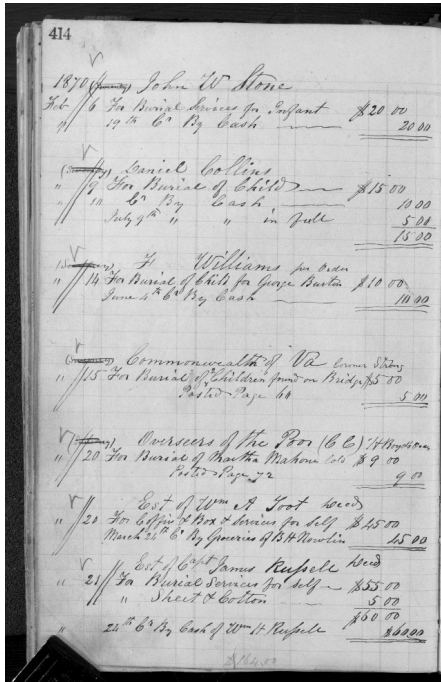 414
1870 John W Stone
Feb 6 For Burial Services for Infant $20 00
" 19th Cr By Cash 20 00
Daniel Collins
" 9 For Burial of Child $15 00
" 10 Cr By Cash 10 00
July 9th " " in full 5 00
15 00
Williams per Order
" 14 For Burial of Child for George Burton $10 00
June 4th Cr By Cash 10 00
Commonwealth of Va
" 15 For Burial of Children found on Bridge $5 00
Posted Page 60
5 00
Overseers of the Poor (C C)
" 20 For Burial of Martha Mahone Cold $9 00
Posted Page 72
9 00
Est of Wm A Toot Decd
" 20 For Coffin & Box & Services for Self $45 00
March 26th Cr By Groceries of B H Nowlin 45 00
Est of Capt James Russell Decd
" 21 For Burial Services for self $55 00
" Sheet & Cotton 5 00
$60 00
" 24th Cr By Cash of Wm H Russell $60.00
$164.00